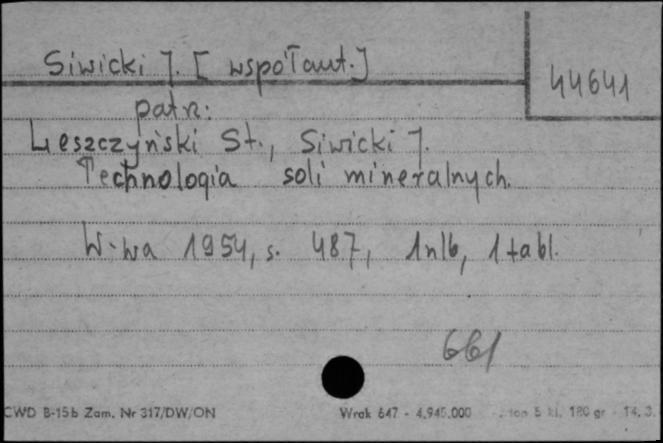 Siwicki J. [współaut.]
44641
patrz:
Leszczyński St., Siwicki J.
Technologia soli mineralnych.
W-wa 1954, s. 487, 1nlb, 1tabl.
661
CWD B-15b Zam. Nr 317/DW/ON Wrak 647 - 4.945.000 kl. 180 gr 14. 3.